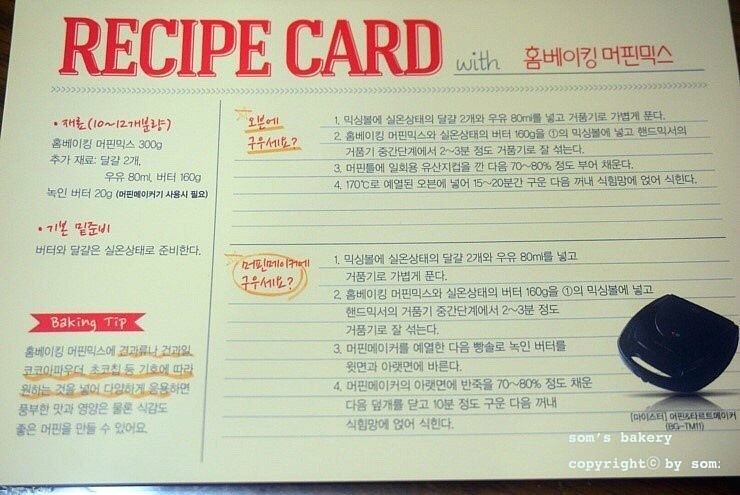 RECIPE CARD with 홈베이킹 머핀믹스
• 재료(10~12개분량)
홈베이킹 머핀믹스 300g
추가 재료: 달걀 2개,
우유 80ml, 버터 160g
녹인 버터 20g (머핀메이커기 사용시 필요)
• 기본 밑준비
버터와 달걀은 실온상태로 준비한다.
Baking Tip
홈베이킹 머핀믹스에 견과류나 건과일,
코코아파우더, 초코칩 등 기호에 따라
원하는 것을 넣어 다양하게 응용하면
풍부한 맛과 영양은 물론 식감도
좋은 머핀을 만들 수 있어요.
오븐에
구우세요?
1. 믹싱볼에 실온상태의 달걀 2개와 우유 80ml를 넣고 거품기로 가볍게 푼다.
2. 홈베이킹 머핀믹스와 실온상태의 버터 160g을 ①의 믹싱볼에 넣고 핸드믹서의
거품기 중간단계에서 2~3분 정도 거품기로 잘 섞는다.
3. 머핀틀에 일회용 유산지컵을 깐 다음 70~80% 정도 부어 채운다.
4. 170℃로 예열된 오븐에 넣어 15~20분간 구운 다음 꺼내 식힘망에 얹어 식힌다.
머핀메이커에
구우세요?
1. 믹싱볼에 실온상태의 달걀 2개와 우유 80ml를 넣고
거품기로 가볍게 푼다.
2. 홈베이킹 머핀믹스와 실온상태의 버터 160g을 ①의 믹싱볼에 넣고
핸드믹서의 거품기 중간단계에서 2~3분 정도
거품기로 잘 섞는다.
3. 머핀메이커를 예열한 다음 빵솔로 녹인 버터를
윗면과 아랫면에 바른다.
4. 머핀메이커의 아랫면에 반죽을 70~80% 정도 채운
다음 덮개를 닫고 10분 정도 구운 다음 꺼내
식힘망에 얹어 식힌다.
[마이스터] 머핀&타르트메이커
(BG-TM11)
som's bakery
copyrightⓒ by som.